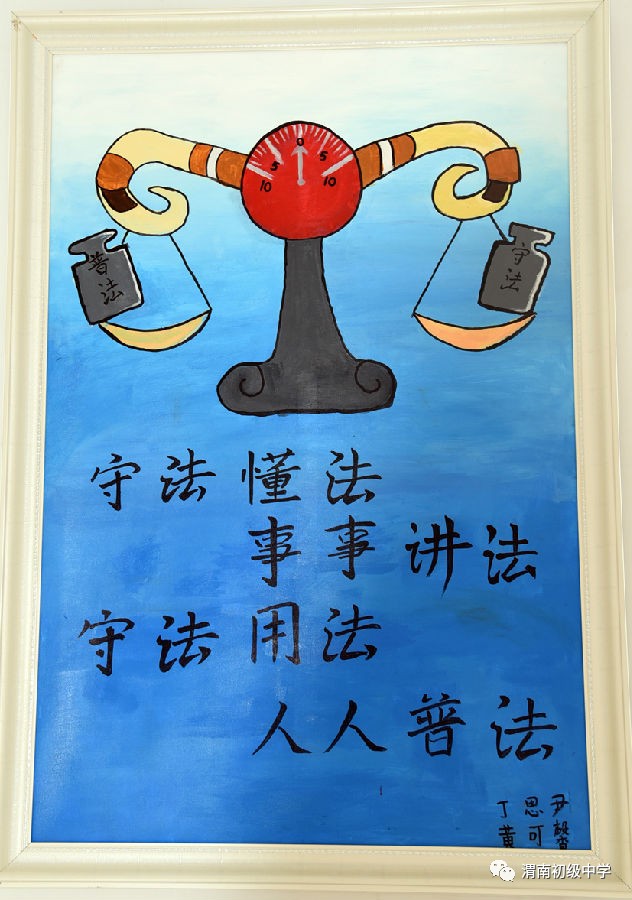 0
5 5
10 10
普法
守法
守法懂法
事事讲法
守法用法
人人普法
丁思尹
黄可馨
渭南初级中学